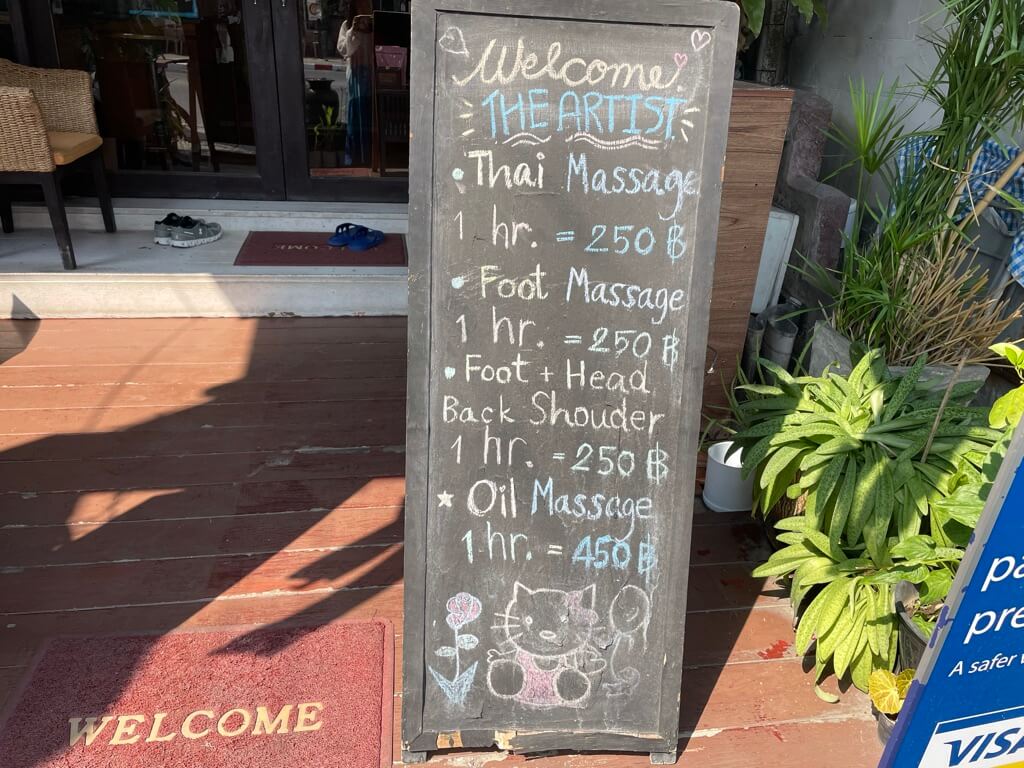 Welcome
THE ARTIST
• Thai Massage
1 hr. = 250 ฿
• Foot Massage
1 hr. = 250 ฿
• Foot + Head
Back Shouder
1 hr. = 250 ฿
★ Oil Massage
1 hr. = 450 ฿
WELCOME
pa
pre
A safer
VISA